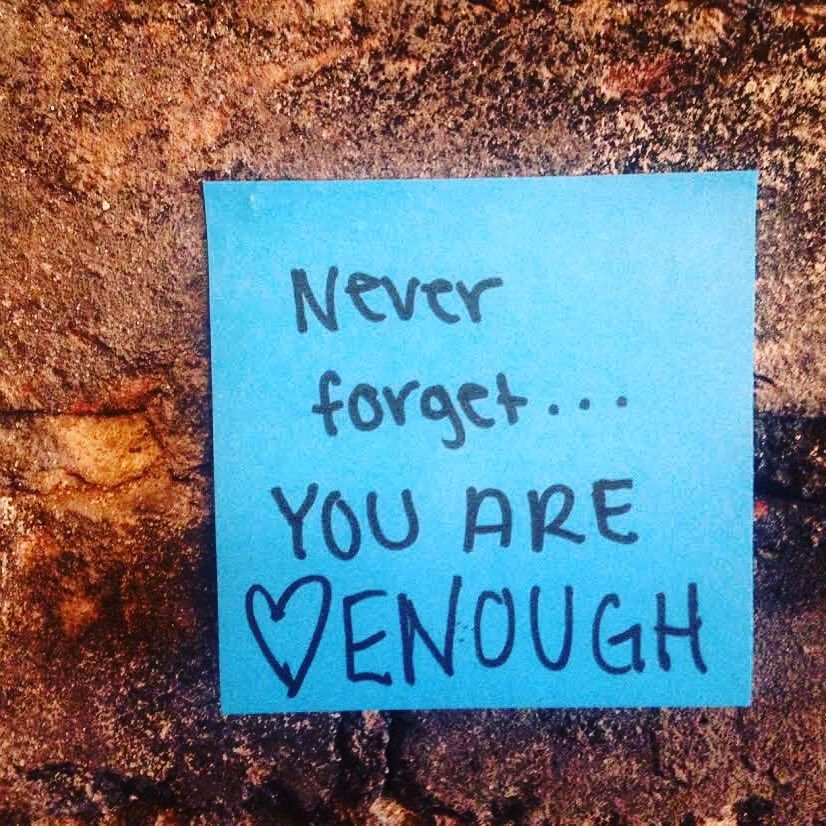 Never
forget...
YOU ARE
♡ENOUGH